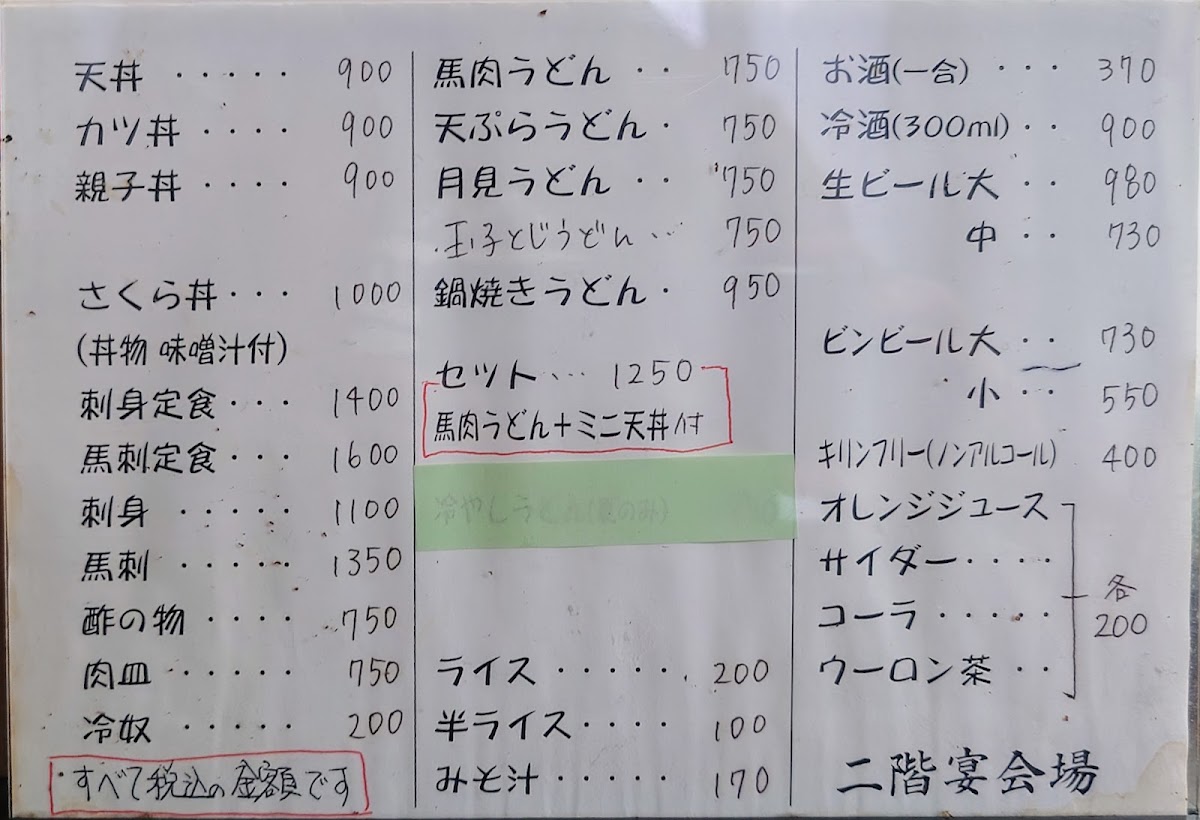 天丼 ・・・・・ 900
カツ丼 ・・・・ 900
親子丼 ・・・・ 900
さくら丼・・・ 1000
(丼物 味噌汁付)
刺身定食・・・ 1400
馬刺定食・・・ 1600
刺身 ・・・・・ 1100
馬刺 ・・・・・ 1350
酢の物 ・・・・ 750
肉皿 ・・・・・ 750
冷奴 ・・・・・ 200
すべて税込の金額です
馬肉うどん ・・ 750
天ぷらうどん・ 750
月見うどん ・・ 750
玉子とじうどん・・ 750
鍋焼きうどん・ 950
セット・・・ 1250
馬肉うどん+ミニ天丼付
冷やしうどん(夏のみ)
ライス・・・・・ 200
半ライス・・・・ 100
みそ汁・・・・・ 170
お酒(一合) ・・・ 370
冷酒(300ml)・・ 900
生ビール大 ・・ 980
中 ・・ 730
ビンビール大 ・・ 730
小 ・・ 550
キリンフリー(ノンアルコール) 400
オレンジジュース
サイダー・・・・
コーラ・・・・・
ウーロン茶・・
各
200
二階宴会場